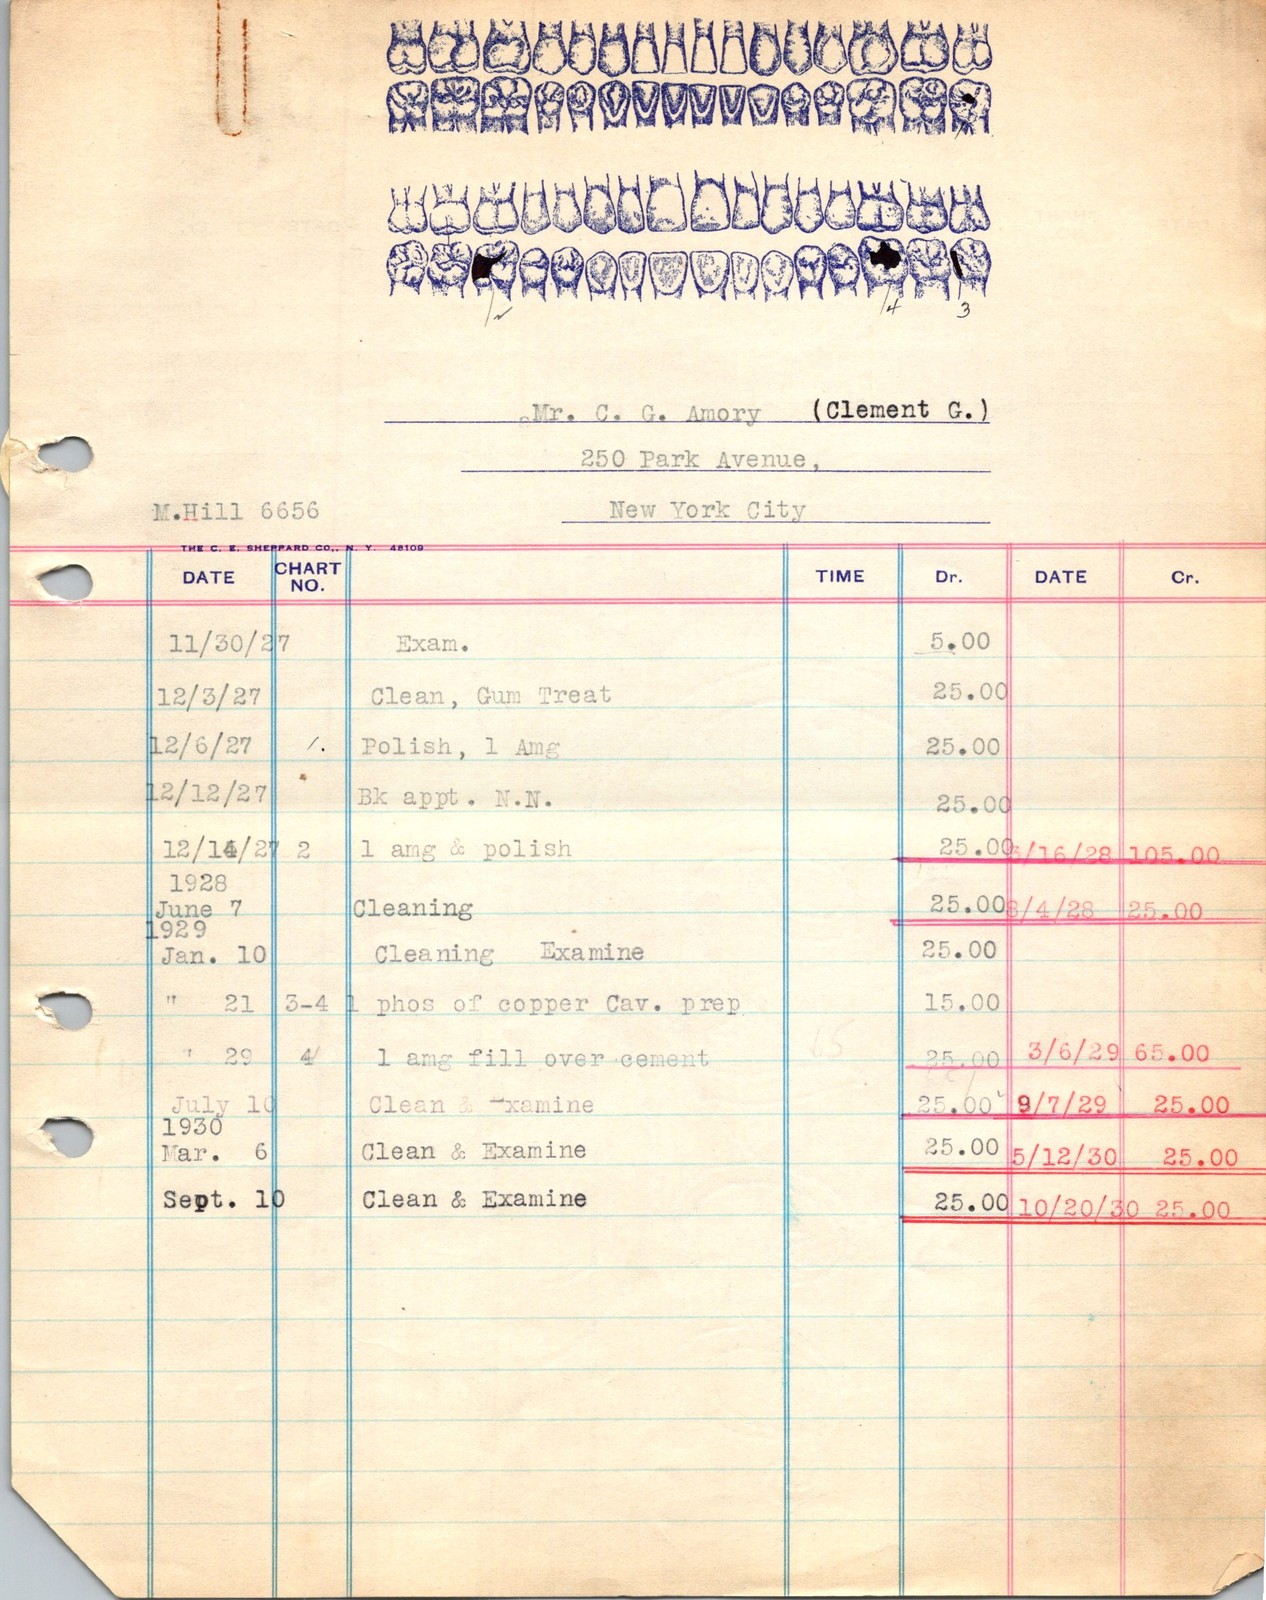 2 4 3
Mr. C. G. Amory (Clement G.)
250 Park Avenue,
M.Hill 6656 New York City
THE C. E. SHEPPARD CO., N. Y. 48109
DATE CHART NO. TIME Dr. DATE Cr.
11/30/27 Exam. 5.00
12/3/27 Clean, Gum Treat 25.00
12/6/27 1. Polish, 1 Amg 25.00
12/12/27 Bk appt. N.N. 25.00
12/14/27 2 1 amg & polish 25.00 3/16/28 105.00
1928
June 7 Cleaning 25.00 8/4/28 25.00
1929
Jan. 10 Cleaning Examine 25.00
" 21 3-4 1 phos of copper Cav. prep 15.00
" 29 4 1 amg fill over cement 65 25.00 3/6/29 65.00
July 10 Clean & Examine 25.00 9/7/29 25.00
1930
Mar. 6 Clean & Examine 25.00 5/12/30 25.00
Sept. 10 Clean & Examine 25.00 10/20/30 25.00